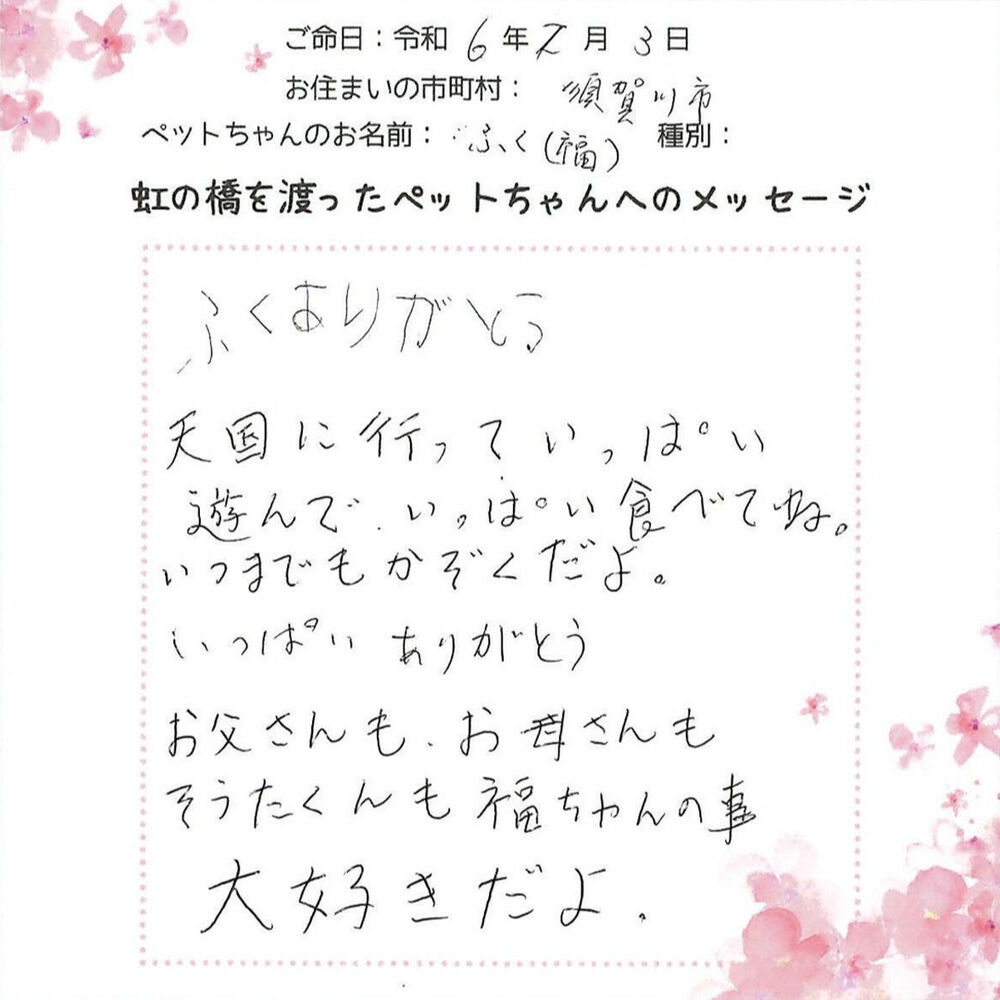 ご命日：令和 6 年 2 月 3 日
お住まいの市町村： 須賀川市
ペットちゃんのお名前： ふく(福) 種別：
虹の橋を渡ったペットちゃんへのメッセージ
ふくありがとう
天国に行っていっぱい
遊んで、いっぱい食べてね。
いつまでもかぞくだよ。
いっぱいありがとう
お父さんも、お母さんも
そうたくんも福ちゃんの事
大好きだよ。